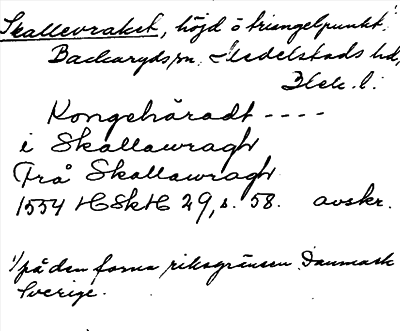 Skallevraket, höjd o triangelpunkt.¹⁾
Backaryds sn. Medelstads hd,
Blek. l.
Kongehäradt ----
i Skallawragh
Frå Skallawragh
1554 HSkH 29, s. 58. avskr.
1/ på den forna riksgränsen Danmark
Sverige.